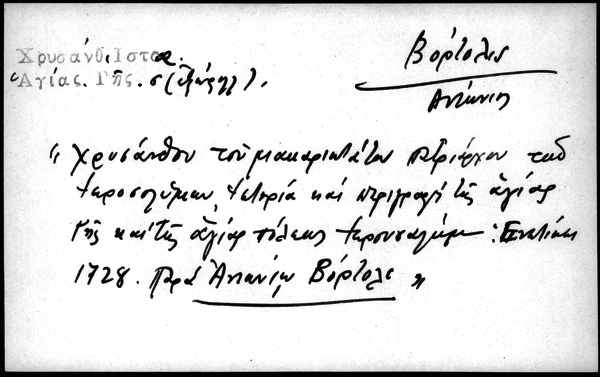 Χρυσάνθ. Ιστορ.
Αγίας. Γῆς. σ
Βόρτολις
Αντώνιος
"Χρυσάνθου τοῦ μακαριωτάτου Πατριάρχου τῶν
Ἱεροσολύμων, Ἱστορία καὶ περιγραφὴ τῆς ἁγίας
Γῆς καὶ τῆς ἁγίας πόλεως Ἱερουσαλήμ: Ἐνετίησι
1728. Παρὰ Ἀντωνίῳ Βόρτολι"